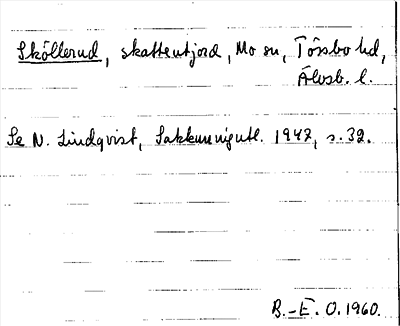 Sköllerud, skattentjord, Mo sn, Tössbo hd,
Älvsb. l.
Se N. Lindqvist, Sakkunnigutl. 1947, s. 32.
B.-E. O. 1960.